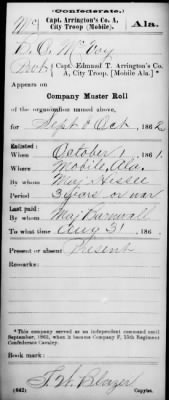 (Confederate.)
Mc | Capt. Arrington's Co. A, City Troop (Mobile). | Ala.
B. O. McVoy
Pvt, Capt. Edmund T. Arrington's Co. A, City Troop, (Mobile Ala.) *
Appears on
Company Muster Roll
of the organization named above,
for Sept & Oct, 1862
Enlisted:
When October 1, 1861.
Where Mobile, Ala.
By whom Maj Hessee
Period 3 years or war
Last paid:
By whom Maj Barnwall
To what time Aug 31, 186
Present or absent Present
Remarks:
*This company served as an independent command until
September, 1863, when it became Company F, 15th Regiment
Confederate Cavalry.
Book mark:
(642)
Copyist.